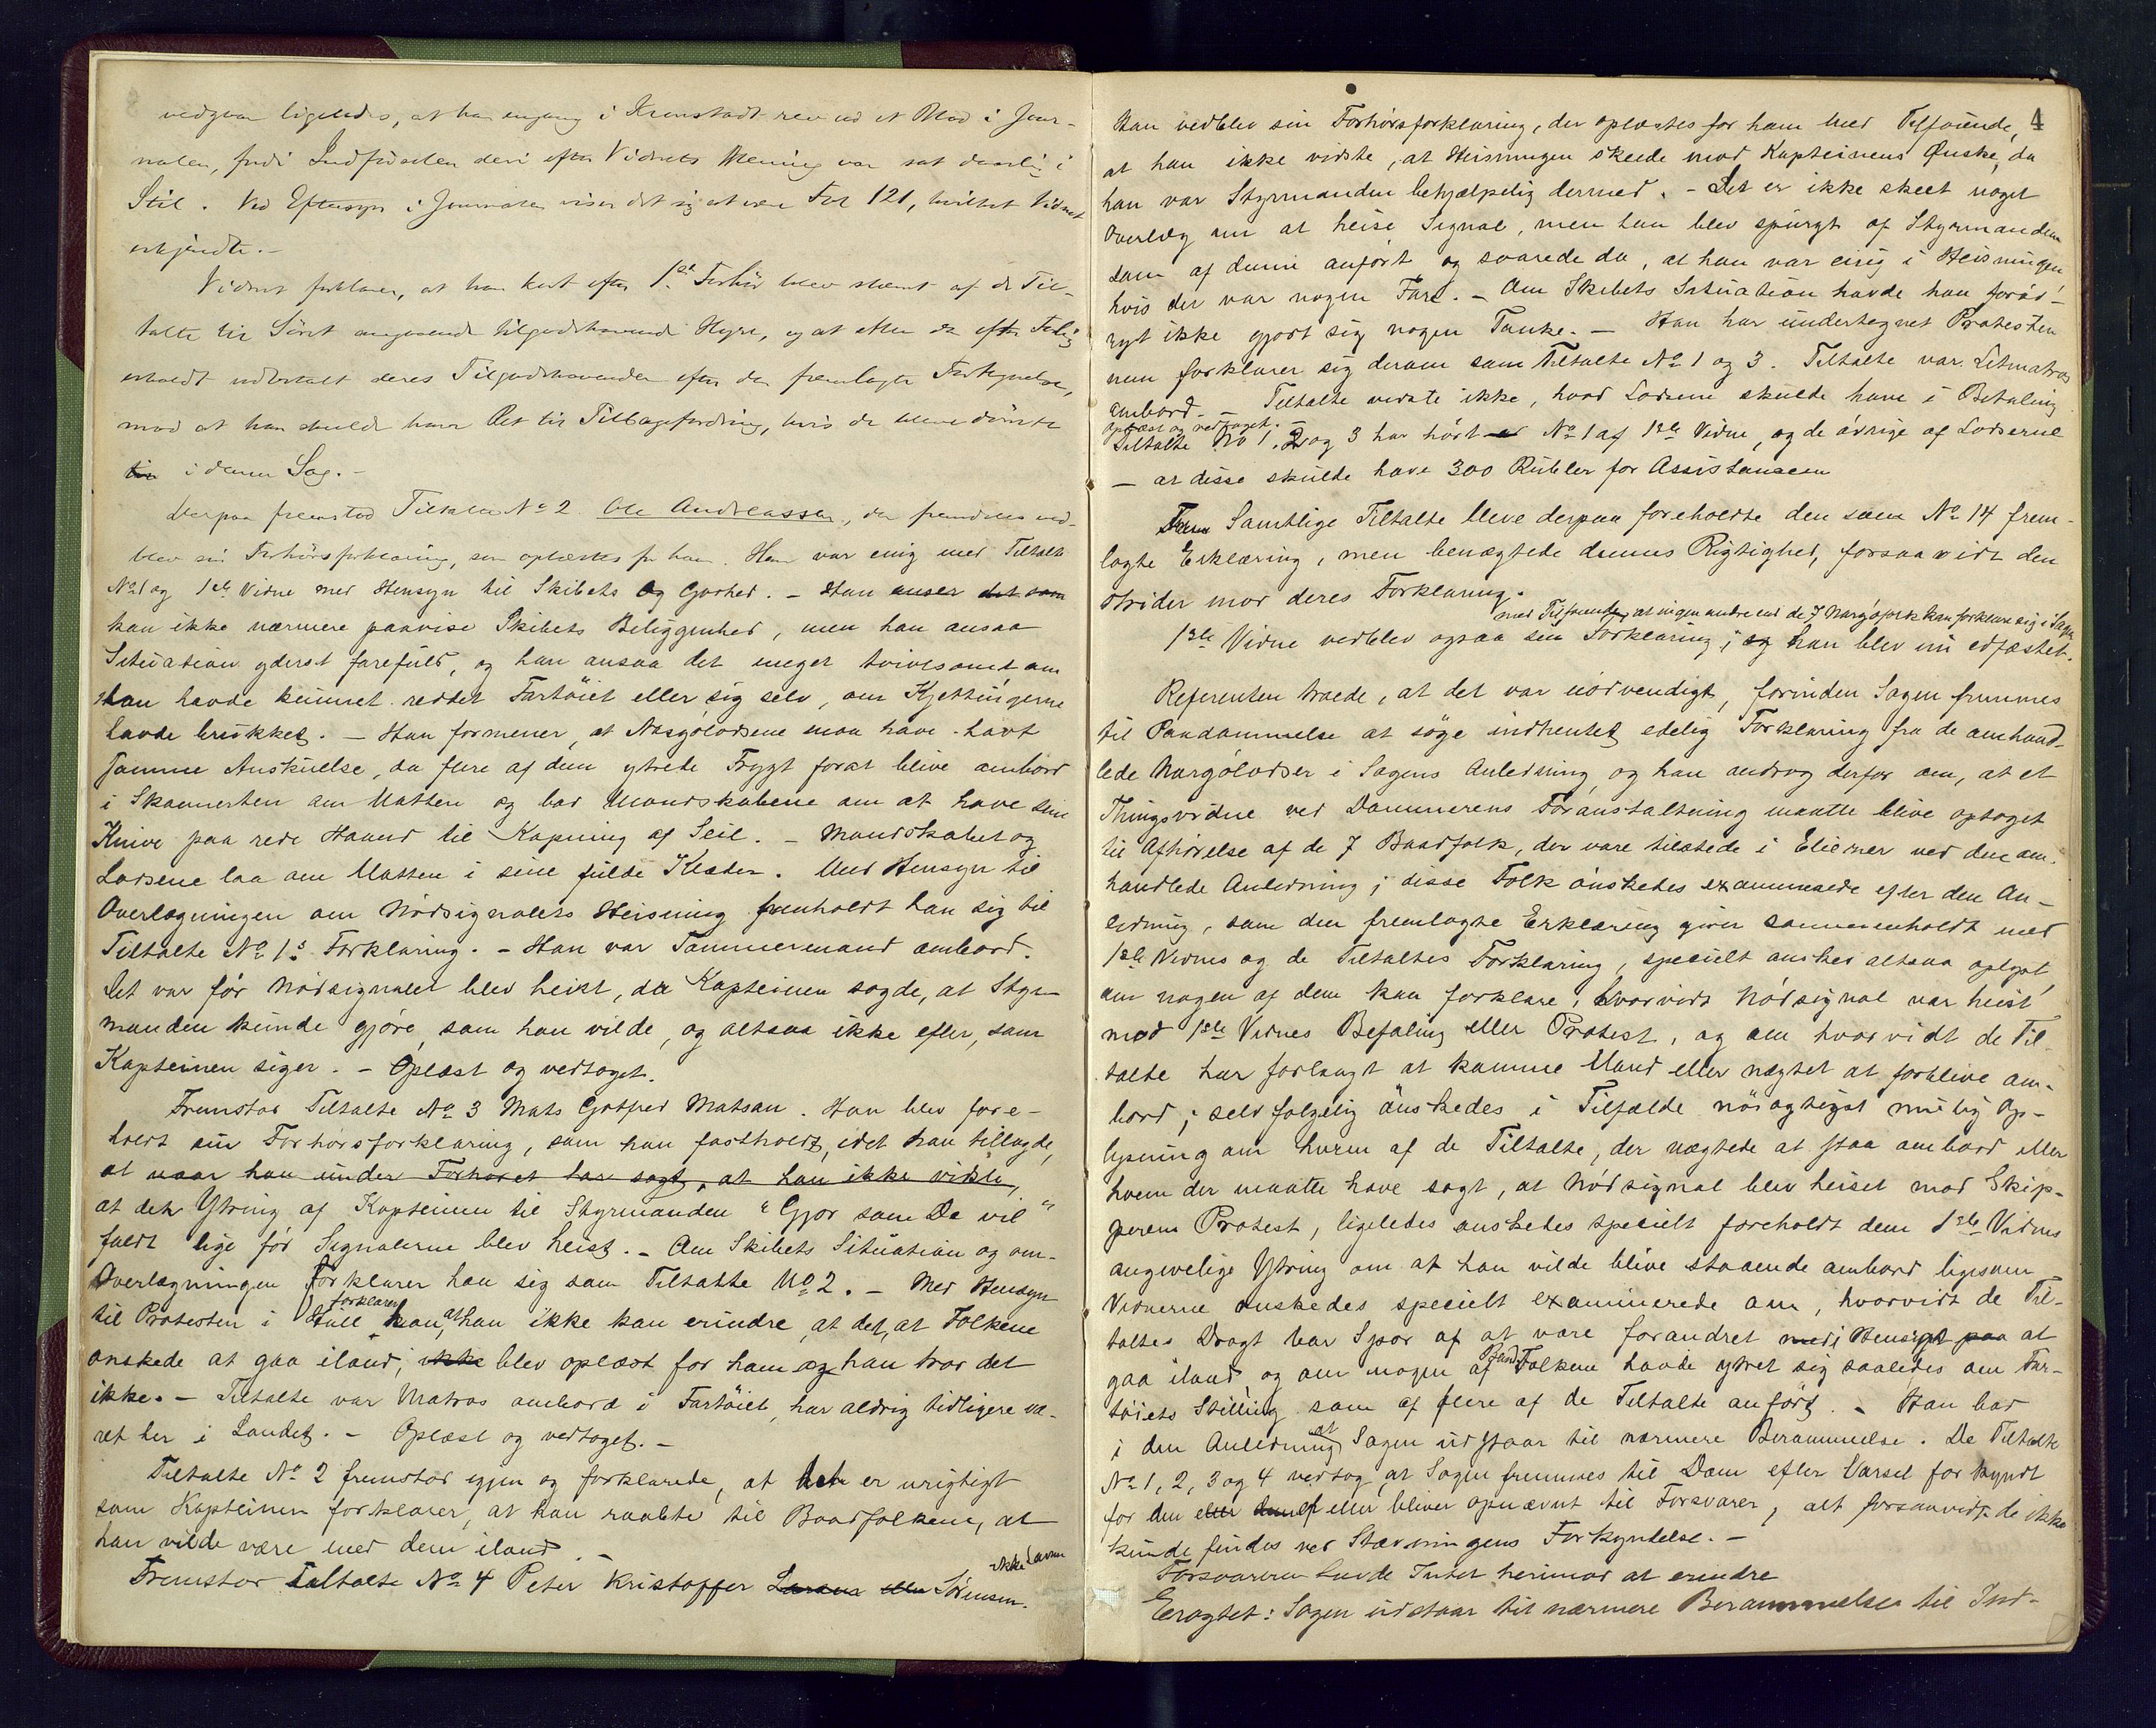 vedgaar ligeledes, at han engang i Kronstadt rev ud et Blad i Jour-
nalen, fordi Indførselen deri efter Vidnets Mening var sat daarlig i
Stil. Ved Eftersyn i Journalen viser det sig at være Fol 121, hvilket Vidnet
erkjendte. -
Vidnet forklarer, at han kort efter 1ste Forhör blev stævnt af de Til-
talte til Söret angaaende tilgodehavende Hyre, og at etter de efter Forlig
erholdt udbetalt deres Tilgodehavender efter den fremlagte Fortegnelse,
mod at han skulde have Ret til Tilbagefordring, hvis de bleve dömte
i denne Sag. -
Derpaa fremstod Tiltalte No 2 Ole Andreassen, der fremdeles ved-
blev sin Forhörsforklaring, som oplæstes for ham. Han var enig med Tiltalte
No 1 og 1ste Vidne med Hensyn til Skibets og Godhed. - Han anser det som
kan ikke nærmere paavise Skibets Beliggenhed, men han ansaa
Situation yderst farefuld, og han ansaa det meget tvivlsomt, om
han havde kunnet reddet Fartöiet eller sig selv, om Kjettingerne
havde brukket. - Han formener, at Nargölodsene maa have havt
samme Anskuelse, da flere af dem ytrede Frygt forat blive ombord
i Skonnerten om Natten og bad Mandskabene om at have sine
Knive paa rede Haand til Kapning af Seil. - Mandskabet og
Lodsene laa om Natten i sine fulde Klæder. Med Hensyn til
Overlægningen om Nödsignalets Heisning henholdt han sig til
Tiltalte No 1s Forklaring. - Han var Tömmermand ombord.
Det var för Nödsignalet blev heist, da Kapteinen sagde, at Styr-
manden kunde gjöre, som han vilde, og altsaa ikke efter, som
Kapteinen siger. - Oplæst og vedtaget.
Fremstod Tiltalte No 3 Mats Gotfred Matsan. Han blev fore-
holdt sin Forhörsforklaring, som han fastholdt, idet han tillagde,
at naar han under Forhöret har sagt, at han ikke vidste,
at det Ytring af Kapteinen til Styrmanden "Gjör som De vil"
faldt lige för Signalerne blev heist. - Om Skibets Situation og om
Overlægningen forklarer han sig som Tiltalte No 2. - Med Hensyn
til Protesten i Hull forklarer han, at han ikke kan erindre, at det, at Folkene
önskede at gaa iland, ikke blev oplæst for ham og han tror det
ikke. - Tiltalte var Matros ombord i Fartöiet, har aldrig tidligere væ-
ret her i Landet. - Oplæst og vedtaget. -
Tiltalte No 2 fremstod igjen og forklarede, at det er urigtigt
som Kapteinen forklarer, at han raabte til Baadfolkene, at
han vilde være med dem iland. -
Fremstod Taltalte No 4 Peter Kristoffer Larsen eller Sörensen. ikke Larsen
4
Han vedblev sin Forhörsforklaring, der oplæstes for ham med Tilföiende,
at han ikke vidste, at Heisningen skeede mod Kapteinens Önske, da
han var Styrmanden behjælpelig dermed. - Det er ikke skeet noget
Overlæg om at heise Signal, men han blev spurgt af Styrmanden
som af denne anfört og svarede da, at han var enig i Heisningen
hvis der var nogen Fare. - Om Skibets Situation havde han forøv-
rigt ikke gjort sig nogen Tanke. - Han har undertegnet Protesten
men forklarer sig derom som Tiltalte No 1 og 3. Tiltalte var Letmatros
ombord. - Tiltalte vidste ikke, hvad Lodsene skulde have i Betaling
oplæst og vedtaget. -
Tiltalte No 1, 2 og 3 har hört No 1 af 1ste Vidne, og de övrige af Lodserne
- at disse skulde have 300 Rubler for Assistansen
Samtlige Tiltalte bleve derpaa foreholdte den som No 14 frem-
lagte Erklæring, men benægtede dennes Rigtighed, forsaavidt den
strider mod deres Forklaring.
med Tilföiende, at ingen andre end de 7 Nargöfolk kan forklare sig i Sagen
1ste Vidne vedblev ogsaa sin Forklaring; og han blev nu edfæstet.
Referenten troede, at det var nödvendigt, forinden Sagen fremmes
til Paadömmelse at söge indhentet edelig Forklaring fra de omhand-
lede Nargölodser i Sagens Anledning og han androg derfor om, at et
Thingsvidne ved Dommerens Foranstaltning maatte blive optaget
til Afhörelse af de 7 Baadfolk, der vare tilstede i Eliesner ved den om-
handlede Anledning; disse Folk önskedes examinerede efter den An-
ledning, som den fremlagte Erklæring giver sammenholdt med
1ste Vidnes og de Tiltaltes Forklaring, specielt önskes altsaa oplyst,
om nogen af dem kan forklare, hvorvidt Nödsignal var heist
mod 1ste Vidnes Befaling eller Protest, og om hvorvidt de Til-
talte har forlangt at komme iland eller nægtet at forblive om-
bord; selvfølgelig önskedes i Tilfælde nöiagtigst mulig Op-
lysning om hvem af de Tiltalte, der nægtede at staa ombord eller
hvem der maatte have sagt, at Nödsignal blev heiset mod Skip-
perens Protest, ligeledes önskedes specielt foreholdt dem 1ste Vidnes
angivelige Ytring om at han vilde blive staaende ombord ligesom
Vidnerne önskedes specielt examinerede om, hvorvidt de Til-
taltes Dragt bar Spor af at være forandret med i Hensigt paa at
gaa iland, og om nogen af Baadfolkene havde ytret sig saaledes om Far-
töiets Stilling som af flere af de Tiltalte anfört. - Han bad
i den Anledning at Sagen udstaar til nærmere Berammelse. De Tiltalte
No 1, 2, 3 og 4 vedtog, at Sagen fremmes til Dom efter Varsel forkyndt
for den eller bliver opnævnt til Forsvarer, alt forsaavidt de ikke
kunde findes ved Stævningens Forkyndelse. -
Forsvareren havde Intet herimod at erindre
Eragtet: Sagen udstaar til nærmere Berammelse til Ind-